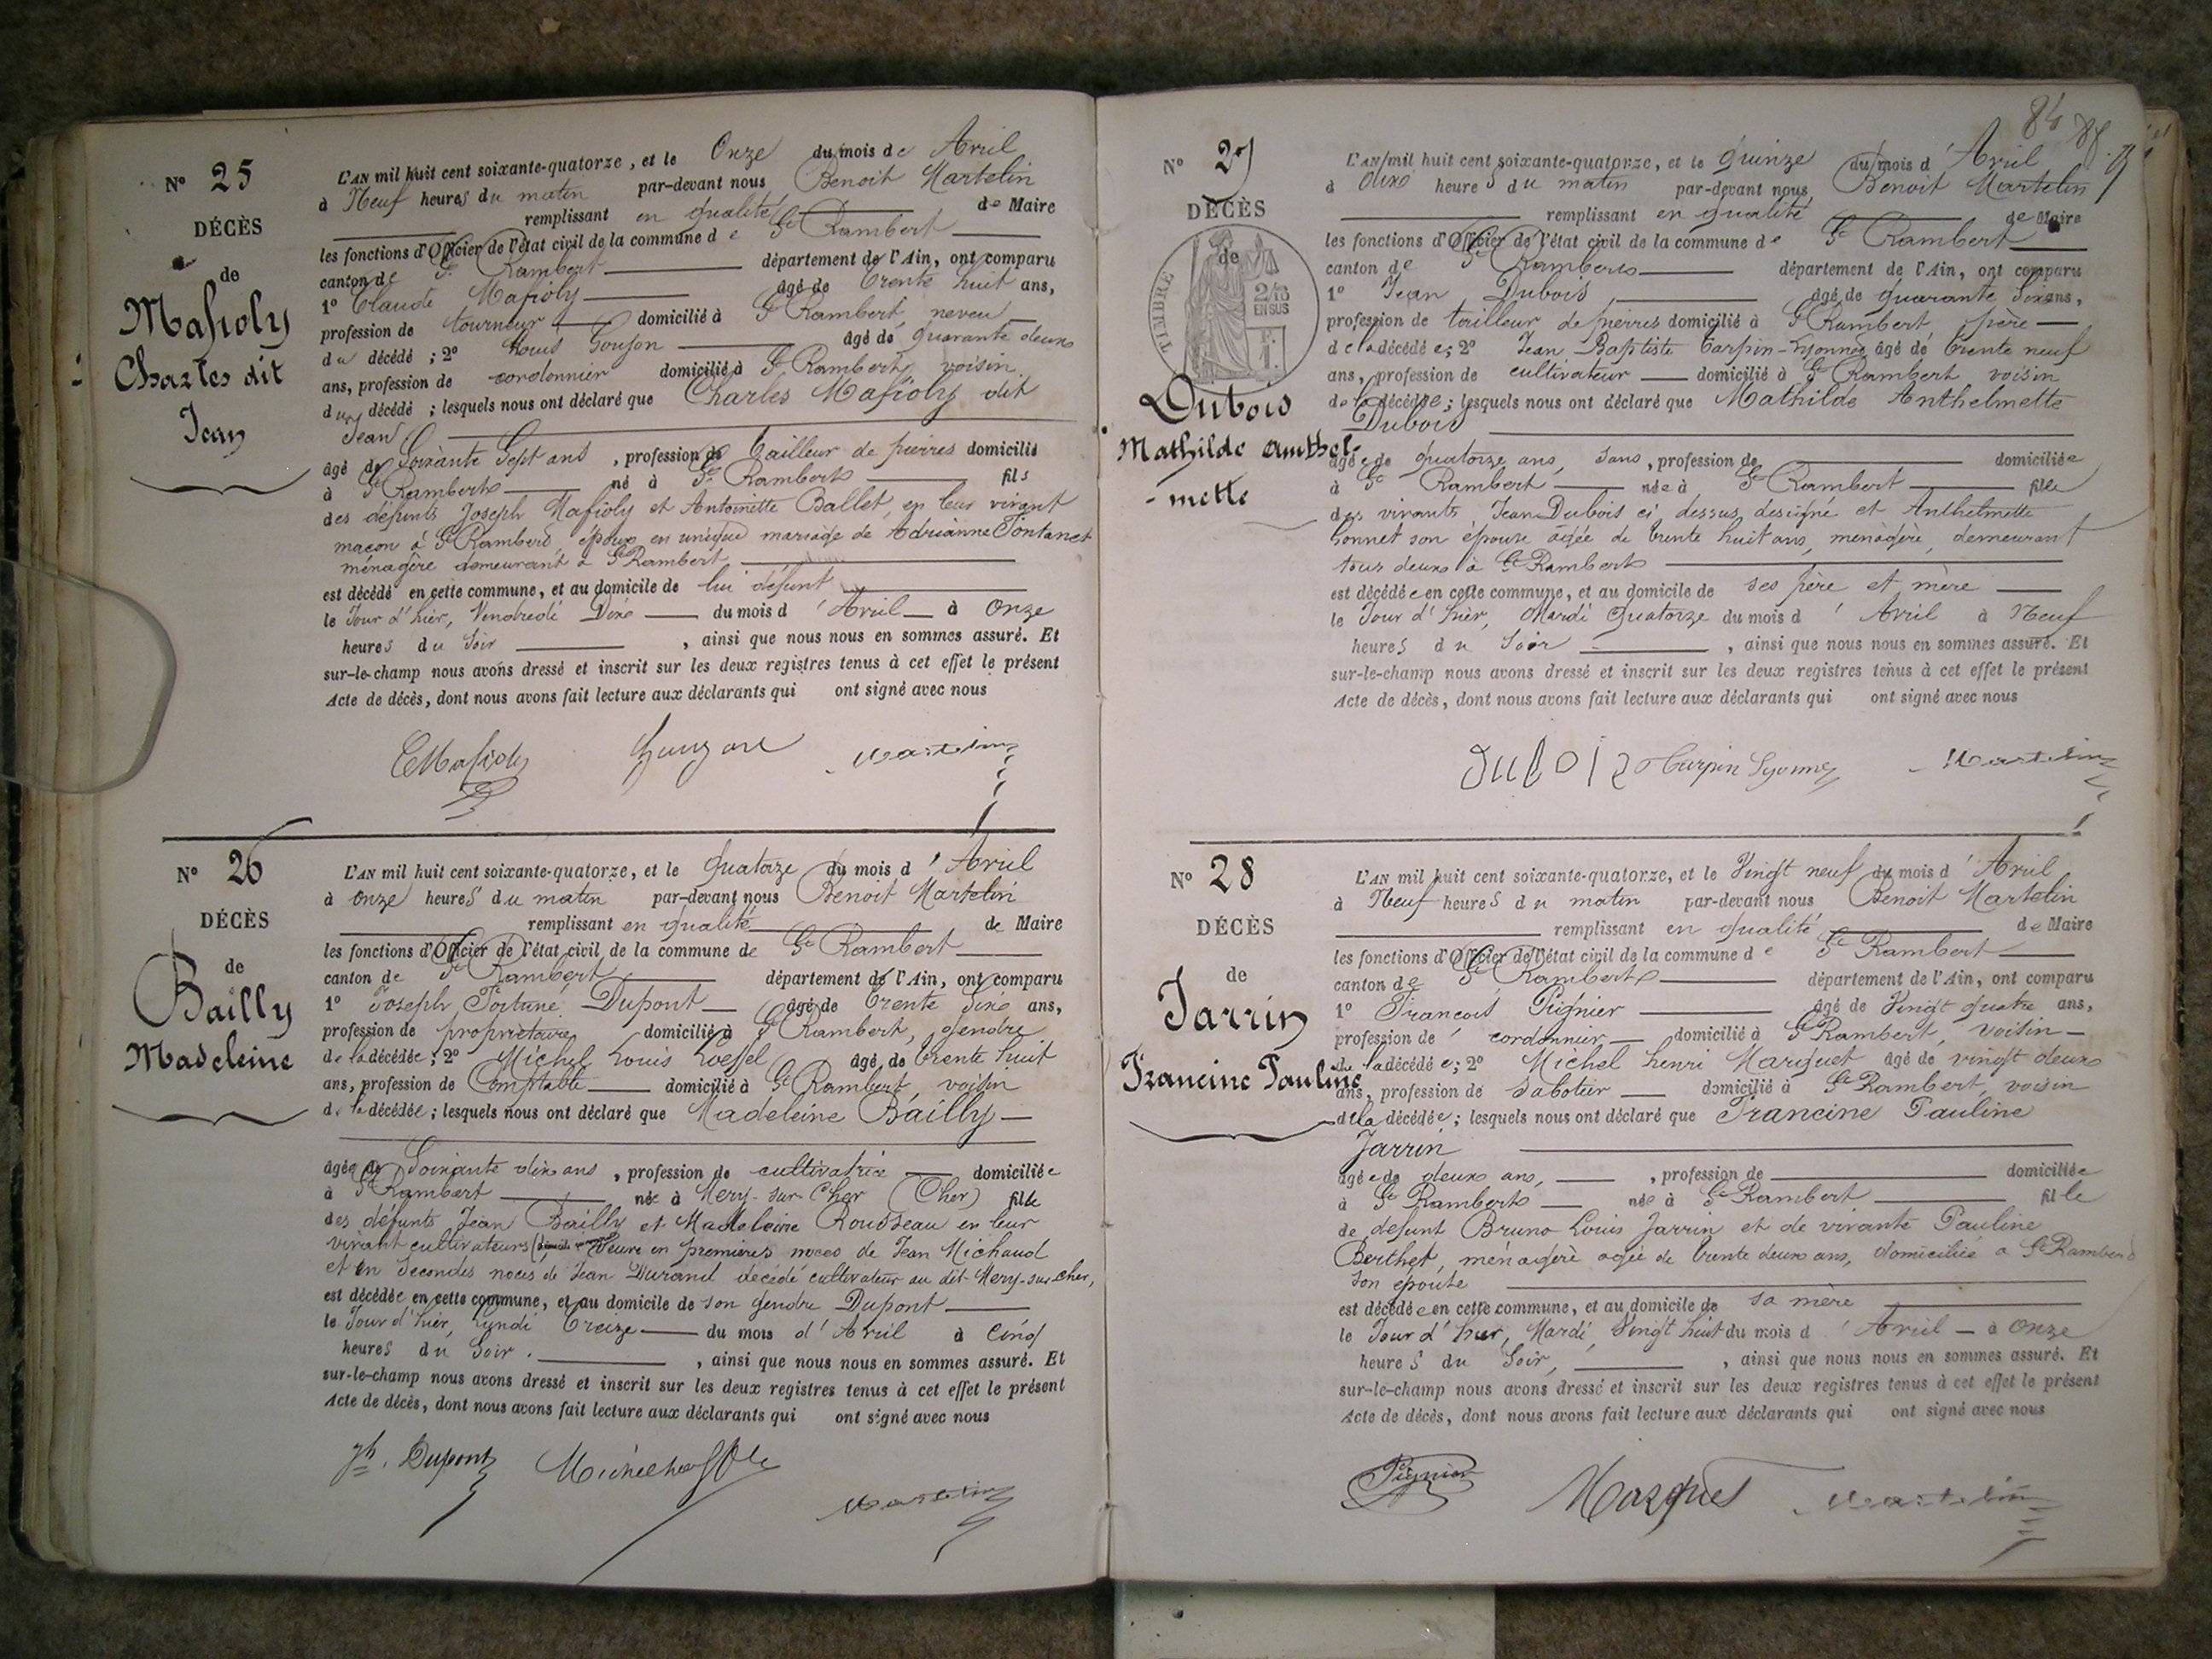 N° 25
DÉCÈS
de
Mafioly
Charles dit
Jean
L'AN mil huit cent soixante-quatorze, et le Onze du mois de Avril
à Neuf heures du matin par-devant nous Benoit Martelin
remplissant en qualité de Maire
les fonctions d'Officier de l'état civil de la commune de St Rambert
canton de St Rambert département de l'Ain, ont comparu
1° Claude Mafioly âgé de trente huit ans,
profession de tourneur domicilié à St Rambert, neveu
du décédé ; 2° Louis Goujon âgé de quarante deux
ans, profession de cordonnier domicilié à St Rambert, voisin
du décédé ; lesquels nous ont déclaré que Charles Mafioly dit
Jean
âgé de Soixante Sept ans, profession de tailleur de pierres domicilié
à St Rambert né à St Rambert fils
des défunts Joseph Mafioly et Antoinette Ballet, en leur vivant
maçon à St Rambert, époux en unique mariage de Adrianne Fontanet
ménagère demeurant à St Rambert
est décédé en cette commune, et au domicile de lui défunt
le Jour d'hier, Vendredi Dix du mois d'Avril à Onze
heures du Soir, ainsi que nous nous en sommes assuré. Et
sur-le-champ nous avons dressé et inscrit sur les deux registres tenus à cet effet le présent
Acte de décès, dont nous avons fait lecture aux déclarants qui ont signé avec nous
CMafioly Gouzon Martelin
N° 26
DÉCÈS
de
Bailly
Madeleine
L'AN mil huit cent soixante-quatorze, et le quatorze du mois d'Avril
à onze heures du matin par-devant nous Benoit Martelin
remplissant en qualité de Maire
les fonctions d'Officier de l'état civil de la commune de St Rambert
canton de St Rambert département de l'Ain, ont comparu
1° Joseph Fortuné Dupont âgé de trente Six ans,
profession de propriétaire domicilié à St Rambert, gendre
de la décédée ; 2° Michel Louis Loeffel âgé de trente huit
ans, profession de Comptable domicilié à St Rambert, voisin
de la décédée ; lesquels nous ont déclaré que Madeleine Bailly
âgée de Soixante dix ans, profession de cultivatrice domiciliée
à St Rambert née à Mery-sur-Cher (Cher) fille
des défunts Jean Bailly et Madeleine Rousseau en leur
vivant cultivateurs Veuve en premières noces de Jean Michaud
et en Secondes noces de Jean Durand décédé cultivateur au dit Mery-sur-cher,
est décédée en cette commune, et au domicile de son gendre Dupont
le Jour d'hier, Lundi Treize du mois d'Avril à Cinq
heures du Soir, ainsi que nous nous en sommes assuré. Et
sur-le-champ nous avons dressé et inscrit sur les deux registres tenus à cet effet le présent
Acte de décès, dont nous avons fait lecture aux déclarants qui ont signé avec nous
Jh. Dupont Martelin
84
N° 27
DÉCÈS
de
TIMBRE
2/10
EN SUS
Dubois
Mathilde Anthel-
-mette
L'AN mil huit cent soixante-quatorze, et le quinze du mois d'Avril
à dix heures du matin par-devant nous Benoit Martelin
remplissant en qualité de Maire
les fonctions d'Officier de l'état civil de la commune de St Rambert
canton de St Rambert département de l'Ain, ont comparu
1° Jean Dubois âgé de quarante Six ans,
profession de tailleur de pierres domicilié à St Rambert, père
de la décédée ; 2° Jean Baptiste Carpin-Lyonnet âgé de trente neuf
ans, profession de cultivateur domicilié à St Rambert voisin
de la décédée ; lesquels nous ont déclaré que Mathilde Anthelmette
Dubois
âgée de quatorze ans, sans, profession de domiciliée
à St Rambert née à St Rambert fille
des vivants Jean Dubois ci dessus désigné et Anthelmette
Bonnet son épouse âgée de trente huit ans, ménagère, demeurant
tous deux à St Rambert
est décédée en cette commune, et au domicile de ses père et mère
le Jour d'hier, Mardi quatorze du mois d'Avril à Neuf
heures du Soir, ainsi que nous nous en sommes assuré. Et
sur-le-champ nous avons dressé et inscrit sur les deux registres tenus à cet effet le présent
Acte de décès, dont nous avons fait lecture aux déclarants qui ont signé avec nous
Duboiz Carpin Lyonnet Martelin
N° 28
DÉCÈS
de
Jarrin
Francine Pauline
L'AN mil huit cent soixante-quatorze, et le Vingt neuf du mois d'Avril
à Neuf heures du matin par-devant nous Benoit Martelin
remplissant en qualité de Maire
les fonctions d'Officier de l'état civil de la commune de St Rambert
canton de St Rambert département de l'Ain, ont comparu
1° Francois Pignier âgé de Vingt quatre ans,
profession de cordonnier domicilié à St Rambert, voisin
de la décédée ; 2° Michel henri Marquet âgé de vingt deux
ans, profession de Saboteur domicilié à St Rambert, voisin
de la décédée ; lesquels nous ont déclaré que Francine Pauline
Jarrin
âgée de deux ans, profession de domiciliée
à St Rambert née à St Rambert fille
de défunt Bruno Louis Jarrin et de vivante Pauline
Berthet, ménagère agée de trente deux ans, domiciliée à St Rambert
son épouse
est décédée en cette commune, et au domicile de sa mère
le Jour d'hier, Mardi Vingt huit du mois d'Avril à Onze
heures du Soir, ainsi que nous nous en sommes assuré. Et
sur-le-champ nous avons dressé et inscrit sur les deux registres tenus à cet effet le présent
Acte de décès, dont nous avons fait lecture aux déclarants qui ont signé avec nous
Pignier Marquet Martelin